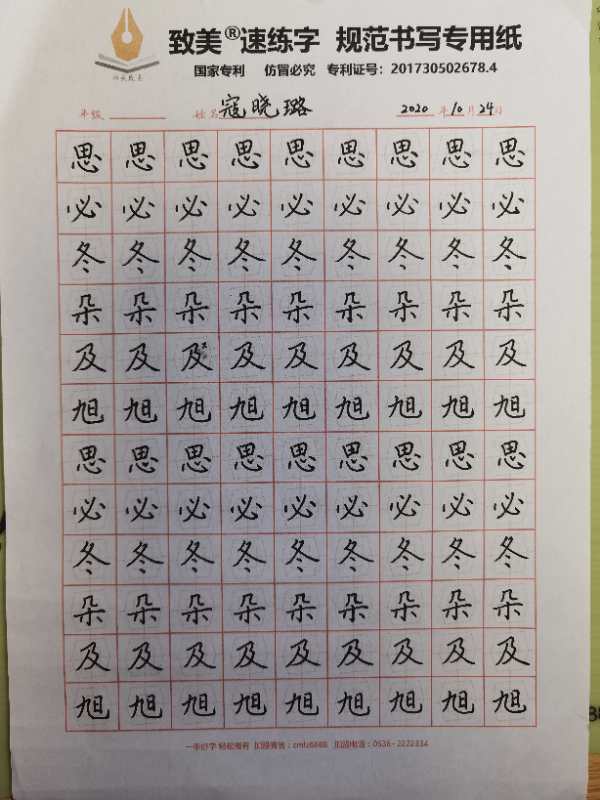 致美®速练字 规范书写专用纸
国家专利 仿冒必究 专利证号：201730502678.4
年级 姓名 寇晓璐 2020 年 10 月 24 日
思 思 思 思 思 思 思 思 思
必 必 必 必 必 必 必 必 必
冬 冬 冬 冬 冬 冬 冬 冬 冬
朵 朵 朵 朵 朵 朵 朵 朵 朵
及 及 及 及 及 及 及 及 及
旭 旭 旭 旭 旭 旭 旭 旭 旭
思 思 思 思 思 思 思 思 思
必 必 必 必 必 必 必 必 必
冬 冬 冬 冬 冬 冬 冬 冬 冬
朵 朵 朵 朵 朵 朵 朵 朵 朵
及 及 及 及 及 及 及 及 及
旭 旭 旭 旭 旭 旭 旭 旭 旭
一手好字 轻松拥有 加盟微信：zmlz6688 加盟电话：0536-2222334